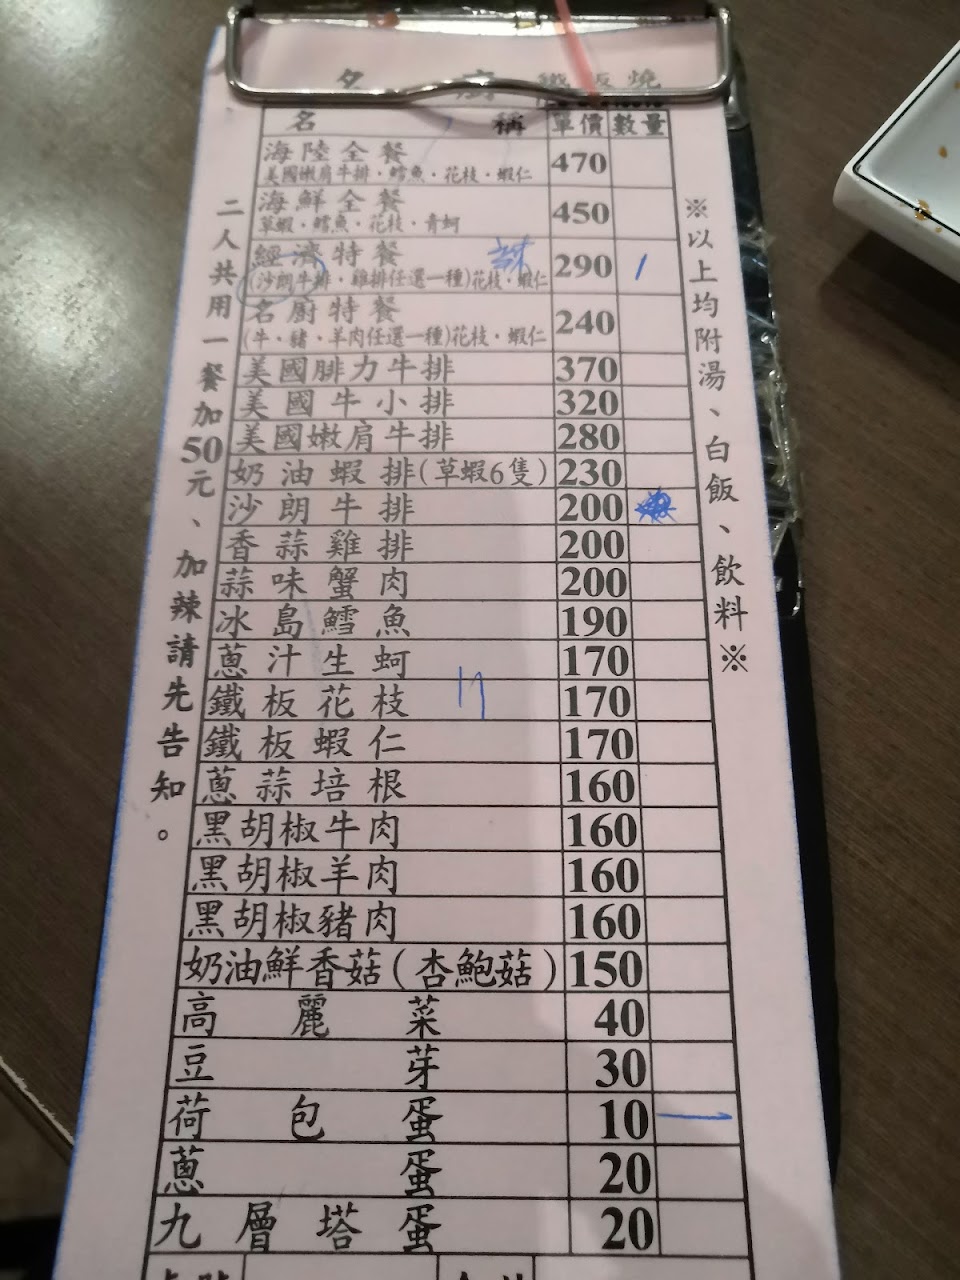 名廚鐵板燒
名稱 單價 數量
海陸全餐 470
美國嫩肩牛排·鱈魚·花枝·蝦仁
海鮮全餐 450
草蝦·鱈魚·花枝·青蚵
經濟特餐 辣 290 1
(沙朗牛排·雞排任選一種)花枝·蝦仁
名廚特餐 240
(牛·豬·羊肉任選一種)花枝·蝦仁
美國腓力牛排 370
美國牛小排 320
美國嫩肩牛排 280
奶油蝦排(草蝦6隻) 230
沙朗牛排 200
香蒜雞排 200
蒜味蟹肉 200
冰島鱈魚 190
蔥汁生蚵 170
鐵板花枝 170
鐵板蝦仁 170
蔥蒜培根 160
黑胡椒牛肉 160
黑胡椒羊肉 160
黑胡椒豬肉 160
奶油鮮香菇(杏鮑菇) 150
高麗菜 40
豆芽 30
荷包蛋 10 一
蔥蛋 20
九層塔蛋 20
二人共用一餐加50元、加辣請先告知。
※以上均附湯、白飯、飲料※